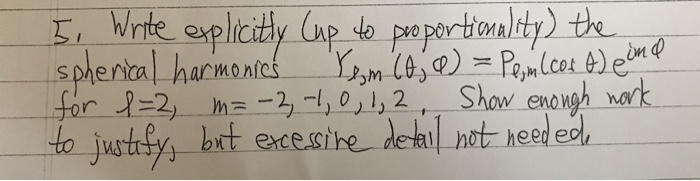 5. Write explicitly (up to proportionality) the
spherical harmonics Yℓ,m (θ, φ) = Pℓ,m(cos θ) e^imφ
for ℓ=2, m= -2, -1, 0, 1, 2. Show enough work
to justify, but excessive detail not needed.